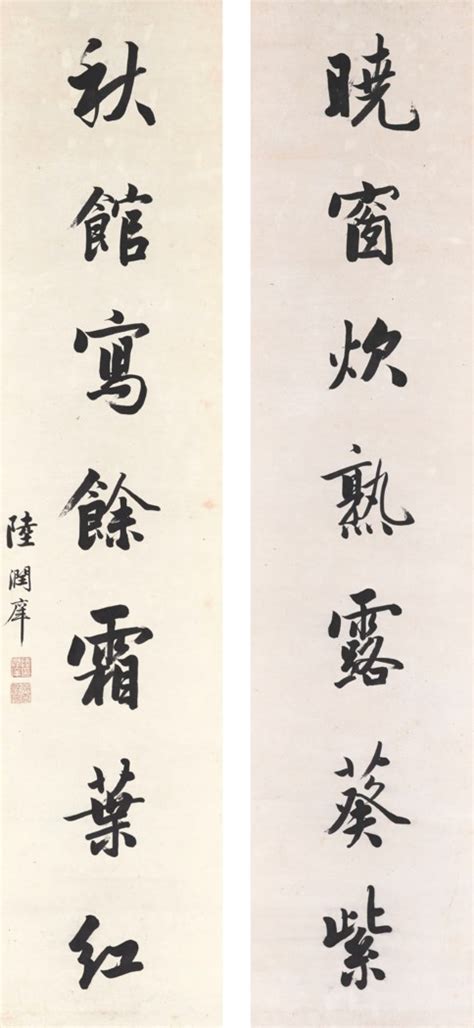 曉窗炊熟露葵紫
秋館寫餘霜葉紅
陸潤庠